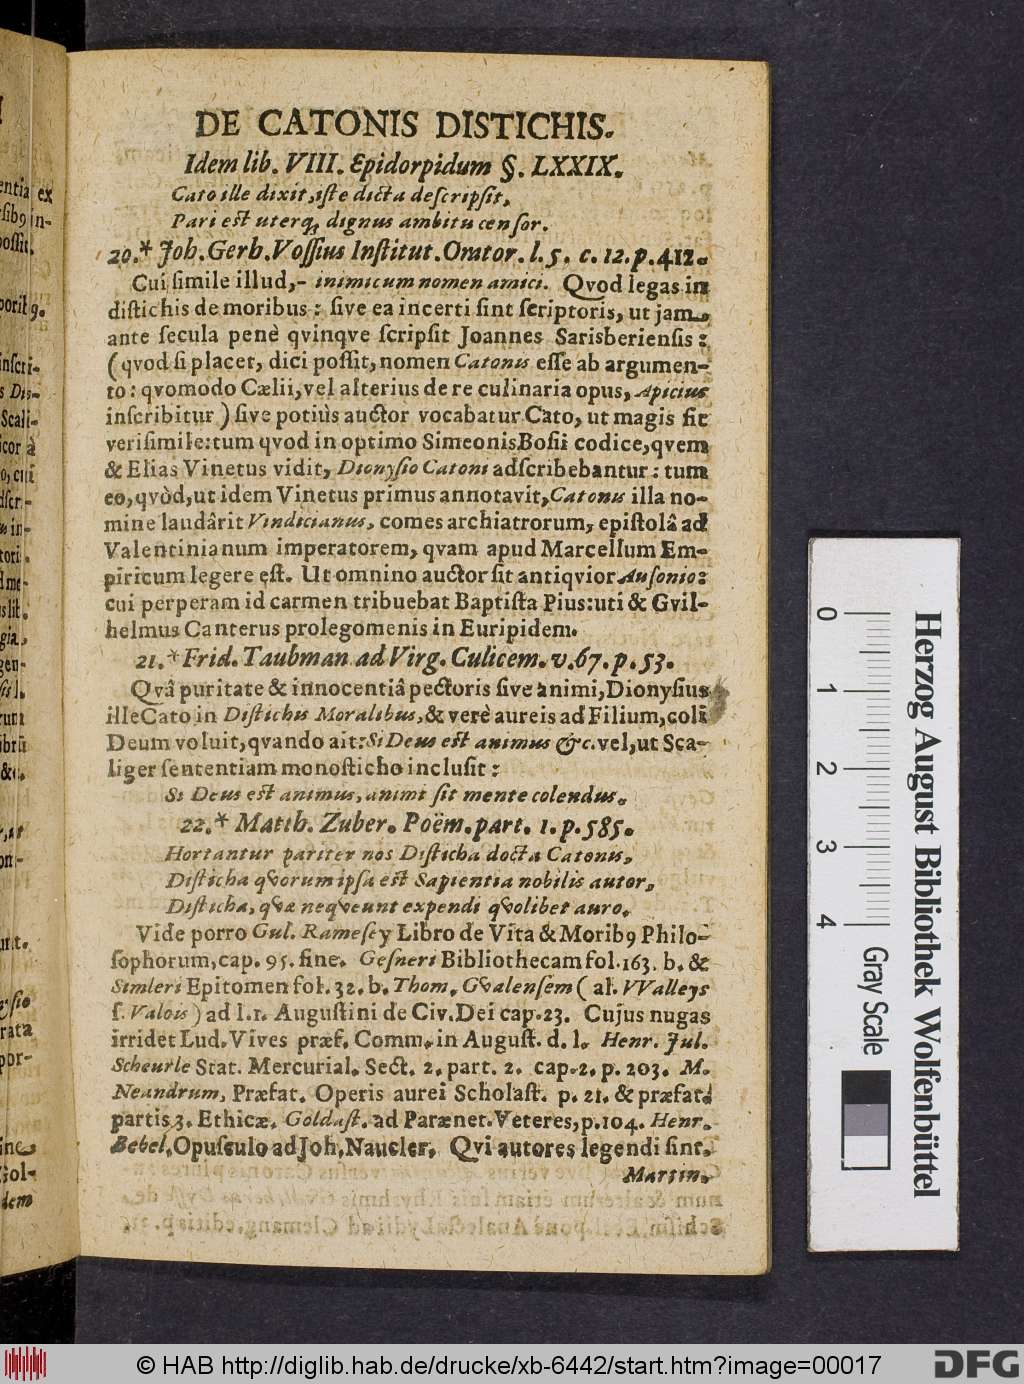 DE CATONIS DISTICHIS.
Idem lib. VIII. Epidorpidum §. LXXIX.
Cato ille dixit, iſte dicta deſcripſit,
Pari eſt uterq; dignus ambitu cenſor.
20.* Joh. Gerh. Voſſius Inſtitut. Orator. l. 5. c. 12. p. 412.
Cui ſimile illud,- inimicum nomen amici. Qvod legas in
diſtichis de moribus: ſive ea incerti ſint ſcriptoris, ut jam,
ante ſecula penè qvinqve ſcripſit Joannes Sarisberienſis:
(qvod ſi placet, dici poſſit, nomen Catonis eſſe ab argumen-
to: qvomodo Cælii, vel alterius de re culinaria opus, Apicius
inſcribitur) ſive potiùs auctor vocabatur Cato, ut magis ſit
veriſimile: tum qvod in optimo Simeonis Boſii codice, qvem
& Elias Vinetus vidit, Dionyſio Catoni adſcribebantur: tum
eo, qvòd, ut idem Vinetus primus annotavit, Catonis illa no-
mine laudârit Vindicianus, comes archiatrorum, epiſtolâ ad
Valentinianum imperatorem, qvam apud Marcellum Em-
piricum legere eſt. Ut omnino auctor ſit antiqvior Auſonio:
cui perperam id carmen tribuebat Baptiſta Pius: uti & Gvil-
helmus Canterus prolegomenis in Euripidem.
21.* Frid. Taubman ad Virg. Culicem. v. 67. p. 53.
Qvâ puritate & innocentiâ pectoris ſive animi, Dionyſius
ille Cato in Diſtichis Moralibus, & verè aureis ad Filium, coli
Deum voluit, qvando ait: Si Deus eſt animus &c. vel, ut Sca-
liger ſententiam monoſticho incluſit:
Si Deus eſt animus, animi ſit mente colendus.
22.* Matth. Zuber. Poëm. part. 1. p. 585.
Hortantur pariter nos Diſticha docta Catonis,
Diſticha qvorum ipſa eſt Sapientia nobilis autor,
Diſticha, qvæ neqveunt expendi qvolibet auro.
Vide porro Gul. Rameſey Libro de Vita & Morib9 Philo-
ſophorum, cap. 95. fine. Geſneri Bibliothecam fol. 163. b. &
Simleri Epitomen fol. 32. b. Thom. Gvalenſem (al. VValleys
ſ. Valois) ad l. 1. Auguſtini de Civ. Dei cap. 23. Cujus nugas
irridet Lud. Vives præf. Comm. in Auguſt. d. l. Henr. Jul.
Scheurle Stat. Mercurial. Sect. 2. part. 2. cap. 2. p. 203. M.
Neandrum, Præfat. Operis aurei Scholaſt. p. 21. & præfat.
partis 3. Ethicæ. Goldaſt. ad Parænet. Veteres, p. 104. Henr.
Bebel. Opuſculo ad Joh. Naucler. Qvi autores legendi ſint.
Martin.
0 1 2 3 4
Gray Scale
Herzog August Bibliothek Wolfenbüttel
© HAB http://diglib.hab.de/drucke/xb-6442/start.htm?image=00017
DFG